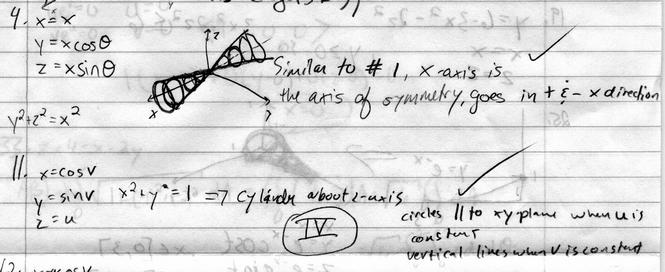 4. x=x
y=xcosθ
z=xsinθ
z
x
y
Similar to #1, x-axis is
the axis of symmetry, goes in + & - x direction
y²+z²=x²
11. x=cosv
y=sinv x²+y²=1 => cylinder about z-axis
z=u
IV
circles || to xy-plane when u is
constant
vertical lines when v is constant